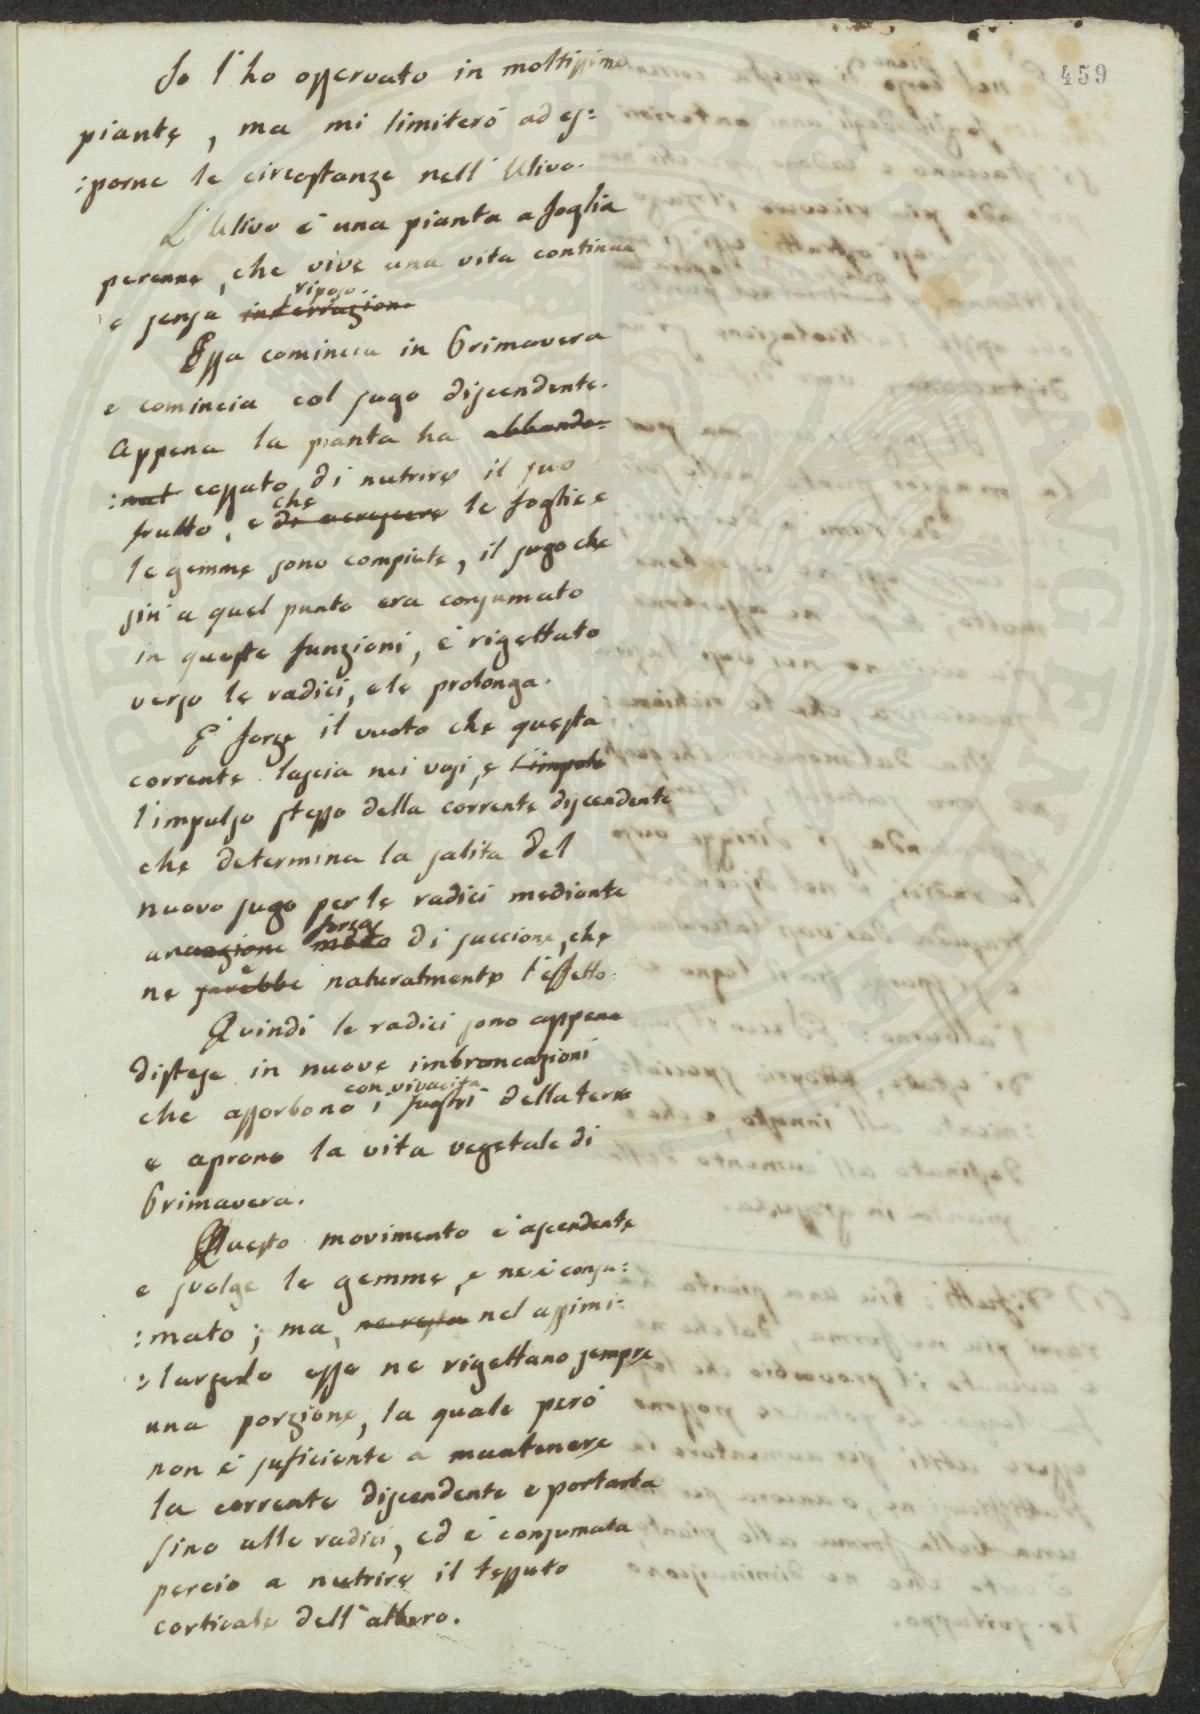 459
Io l'ho osservato in moltissime
piante, ma mi limiterò ad es:
:porne le circostanze nell'Ulivo.
L'Ulivo è una pianta a foglia
perenne, che vive una vita continua
riposo.
e senza interruzione
Essa comincia in Primavera
e comincia col sugo discendente.
Appena la pianta ha abbando:
:nat cessato di nutrire il suo
che
frutto, e di accrescere le foglie e
le gemme sono compiute, il sugo che
sin a quel punto era consumato
in queste funzioni, è rigettato
verso le radici, e le prolonga.
E' forse il vuoto che questa
corrente lascia nei vasi, e l'impule
l'impulso stesso della corrente discendente
che determina la salita del
nuovo sugo per le radici mediante
forza
un azione moto di succione, che
è
ne sarebbe naturalmente l'effetto.
Quindi le radici sono appena
distese in nuove imbrancazioni
con vivacità
che assorbono i sughi della terra
e aprono la vita vegetale di
Primavera.
Questo movimento è ascendente
e svolge le gemme, e ne è consu:
:mato; ma, ne resta nel assimi:
:larselo esse ne rigettano sempre
una porzione, la quale però
non è suficiente a mantenere
la corrente discendente e portarla
sino alle radici, ed è consumata
percio a nutrire il tessuto
corticale dell'albero.